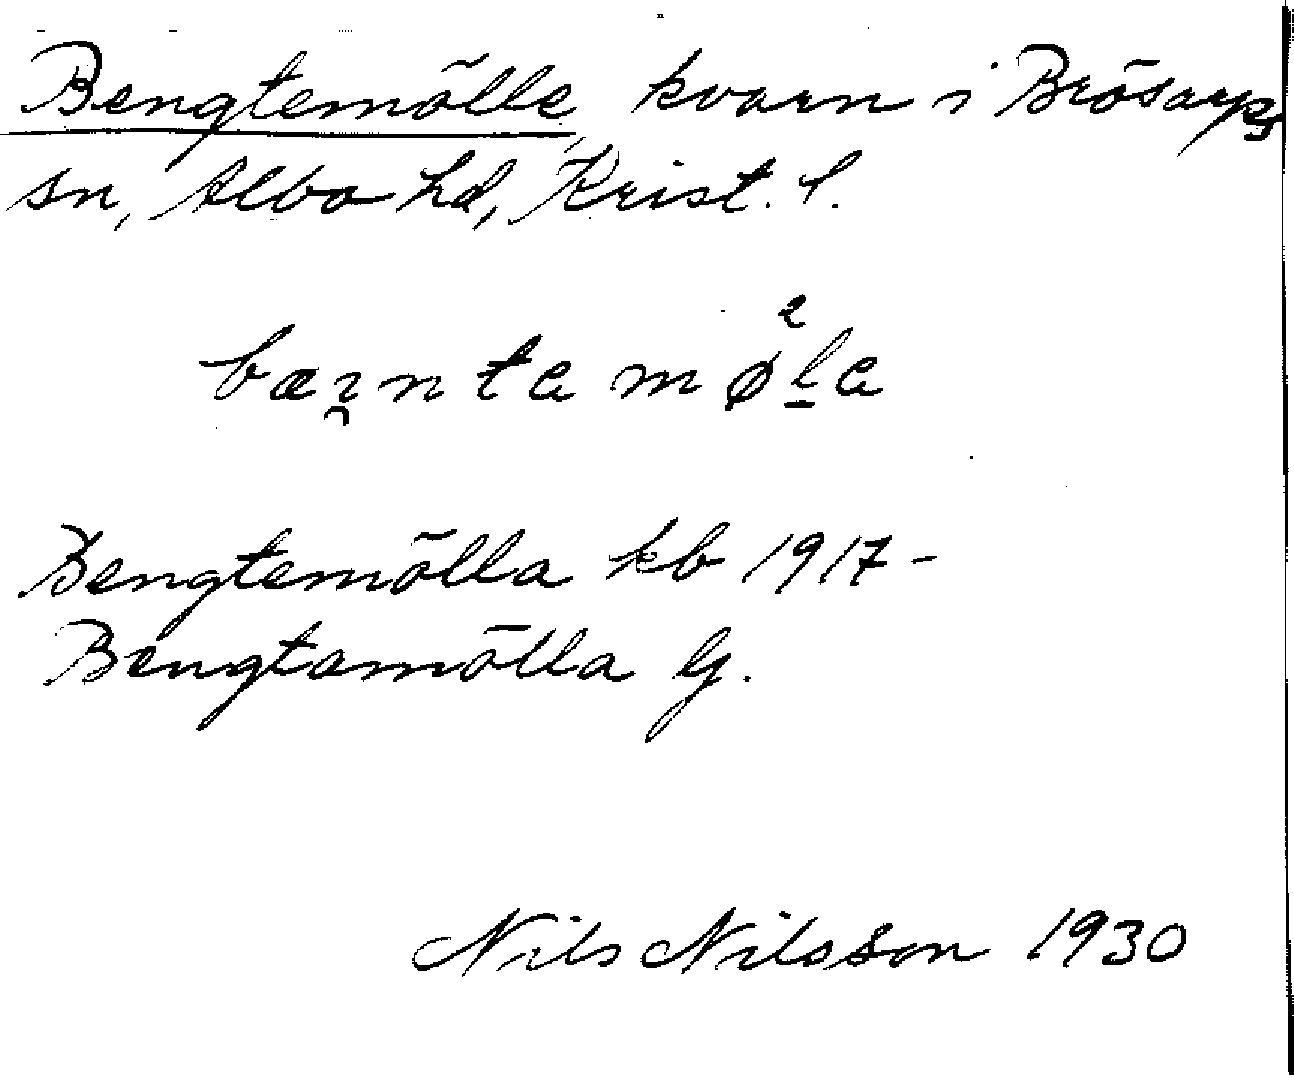 Bengtemölle, kvarn i Brösarps
sn, Albo hd, Krist. l.
Bengtemölla kb 1917-
Bengtamölla G.
Nils Nilsson 1930